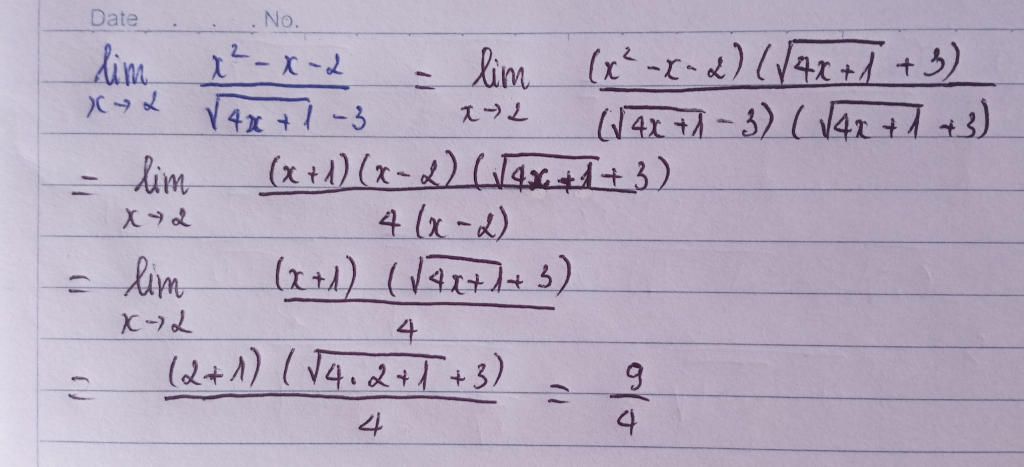 Date . . . No.
lim x→2 (x² - x - 2)/(√(4x+1) - 3) = lim x→2 ((x² - x - 2)(√(4x+1) + 3))/((√(4x+1) - 3)(√(4x+1) + 3))
= lim x→2 ((x+1)(x-2)(√(4x+1) + 3))/(4(x-2))
= lim x→2 ((x+1)(√(4x+1) + 3))/4
= ((2+1)(√(4.2+1) + 3))/4 = 9/4